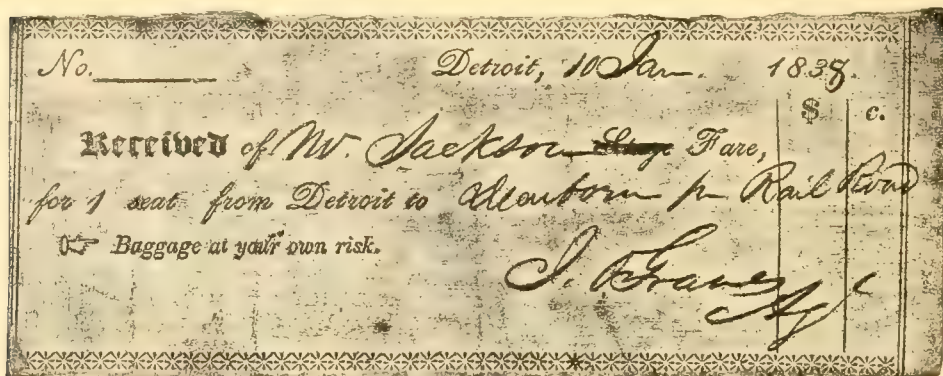 No. Detroit, 10 Jan. 1838
$ c.
Received of Mr. Jackson Stage Fare,
for 1 seat from Detroit to Dearborn pr Rail Road
☞ Baggage at your own risk.
J. Graves
Agt